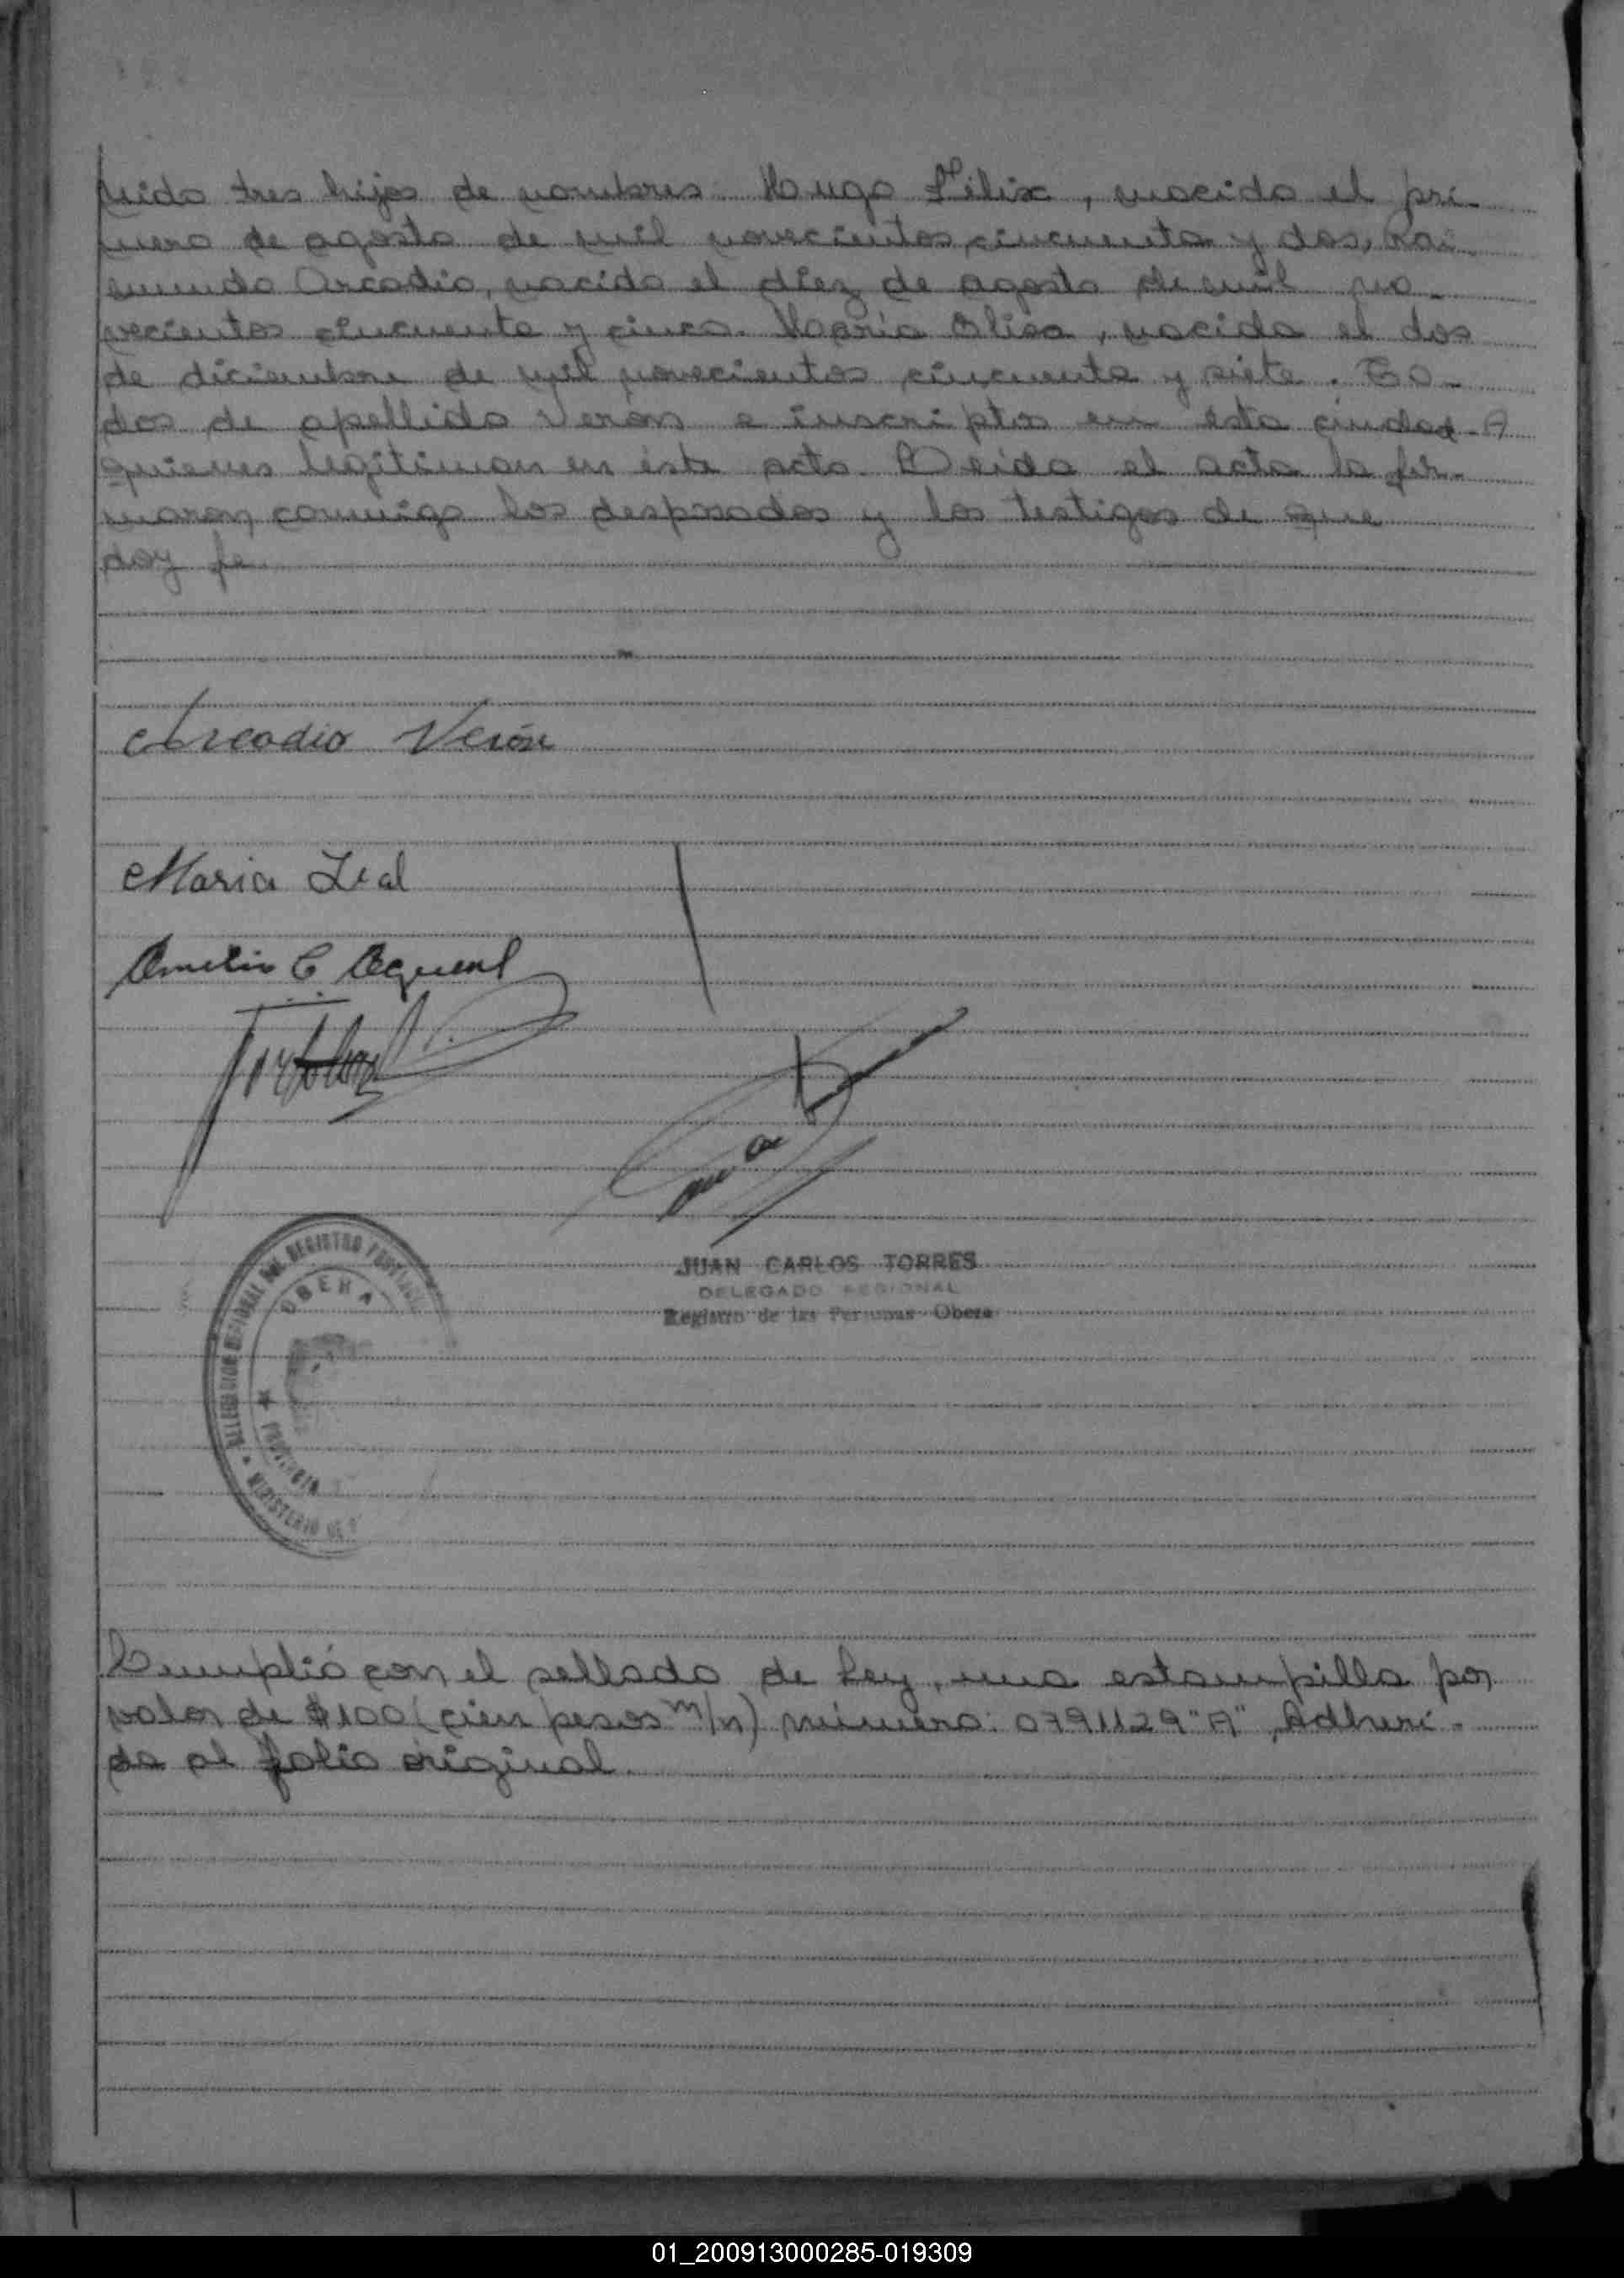 nido tres hijos de nombres: Hugo Félix, nacido el pri-
mero de agosto de mil novecientos cincuenta y dos, Rai-
mundo Arcadio, nacido el diez de agosto de mil no-
vecientos cincuenta y cinco. María Elisa, nacida el dos
de diciembre de mil novecientos cincuenta y siete. To-
dos de apellido Verón e inscriptos en esta ciudad. A
quienes legitiman en este acto. Leida el acta la fir-
maron conmigo los desposados y los testigos de que
doy fe.
Arcadio Verón
Maria Leal
JUAN CARLOS TORRES
DELEGADO REGIONAL
Registro de las Personas Obera
OBERA
PROVINCIA
MINISTERIO DE
Cumplió con el sellado de Ley, una estampilla por
valor de $100 (cien pesos m/n) número: 0791129 "A", Adheri-
da al folio original.
01_200913000285-019309